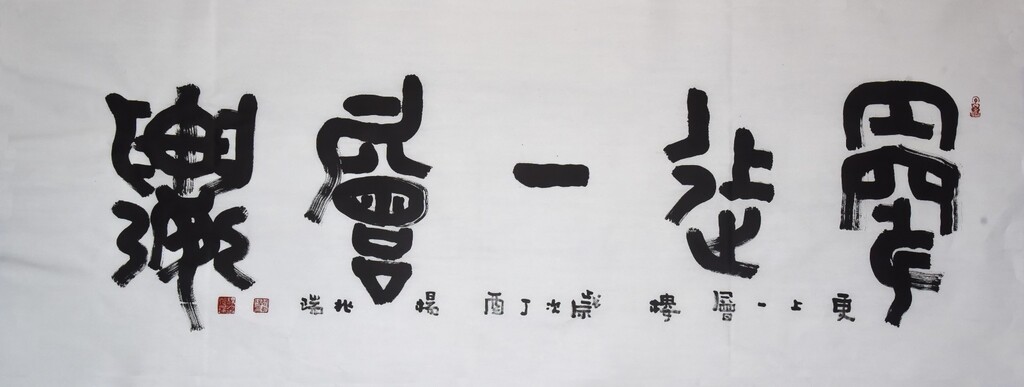 更上一層樓
更上一層樓 歲次丁酉 楊兆瑞